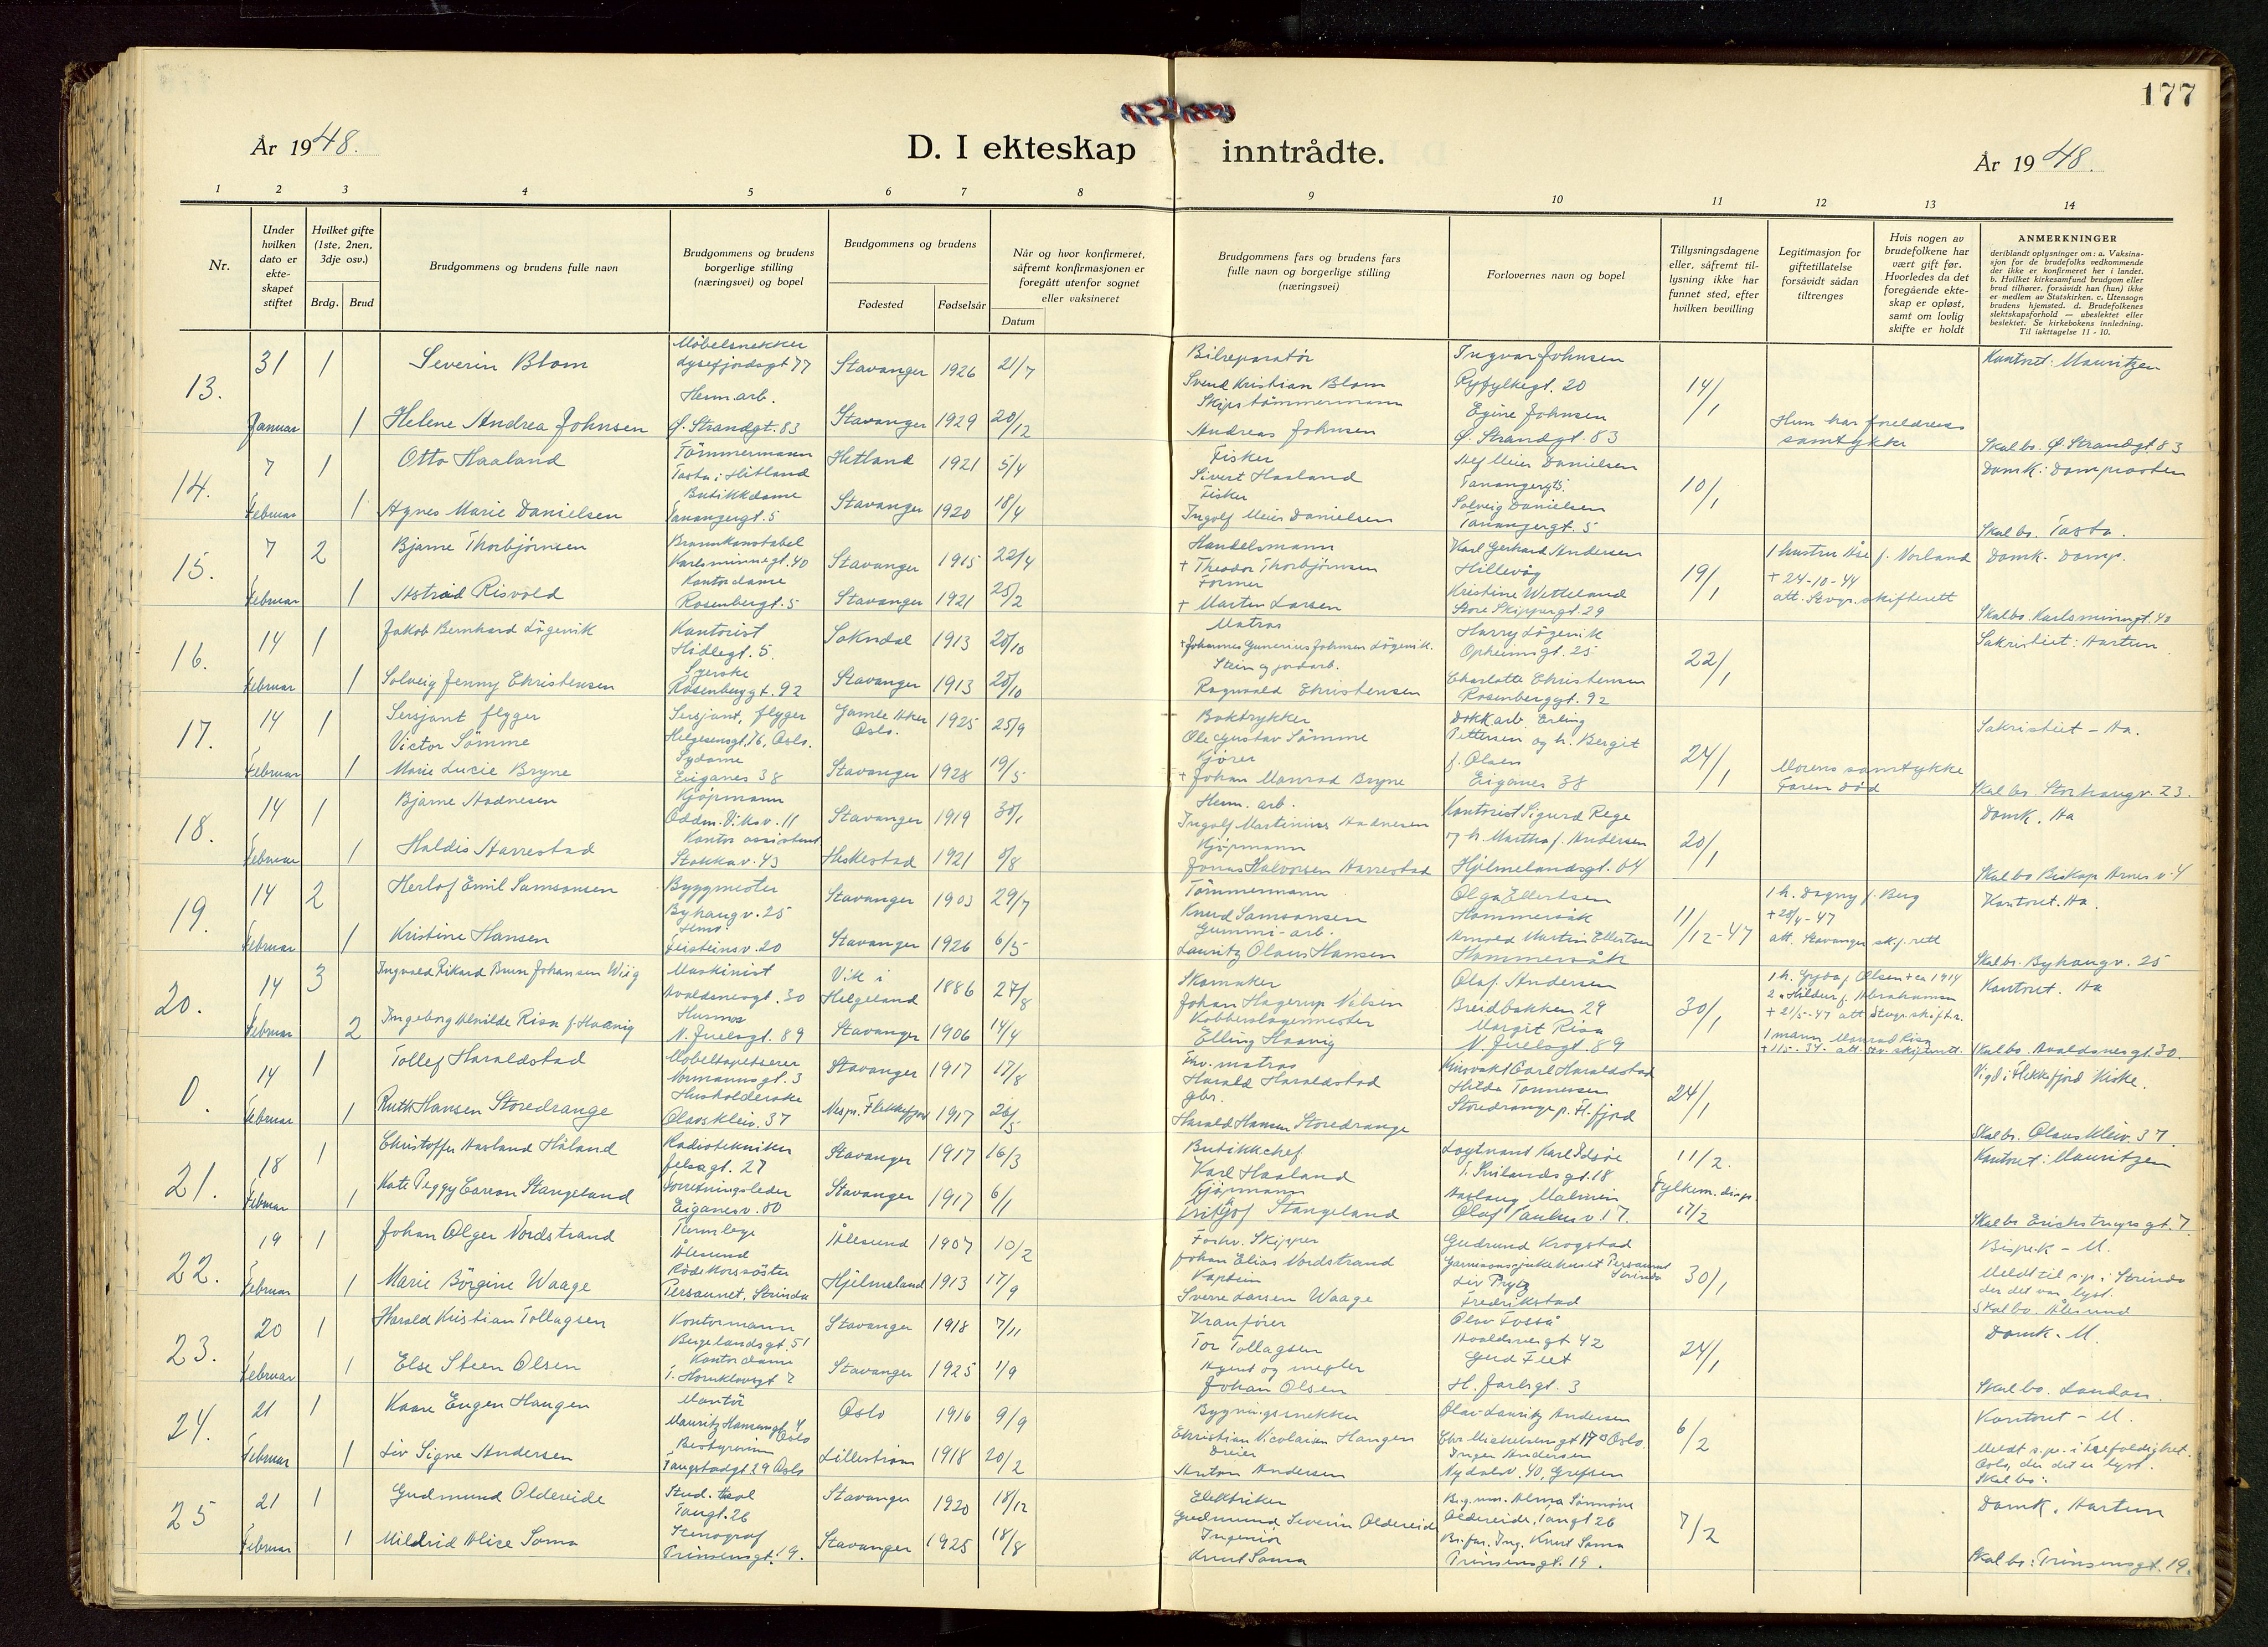 177
År 1948.
D. I ekteskap inntrådte.
År 1948.
1 2 3 4 5 6 7 8 9 10 11 12 13 14
Nr.
Under hvilken dato er ekte-skapet stiftet
Hvilket gifte (1ste, 2nen, 3dje osv.)
Brdg. Brud
Brudgommens og brudens fulle navn
Brudgommens og brudens borgerlige stilling (næringsvei) og bopel
Brudgommens og brudens
Fødested
Fødselsår
Når og hvor konfirmeret, såfremt konfirmasjonen er foregått utenfor sognet eller vaksineret
Datum
Brudgommens fars og brudens fars fulle navn og borgerlige stilling (næringsvei)
Forlovernes navn og bopel
Tillysningsdagene eller, såfremt til-lysning ikke har funnet sted, efter hvilken bevilling
Legitimasjon for giftetillatelse forsåvidt sådan tiltrenges
Hvis nogen av brudefolkene har vært gift før. Hvorledes da det foregående ekte-skap er opløst, samt om lovlig skifte er holdt
ANMERKNINGER
deriblandt oplysninger om: a. Vaksina-sjon for de brudefolks vedkommende der ikke er konfirmeret her i landet. b. Hvilket kirkesamfund brudgom eller brud tilhører, forsåvidt han (hun) ikke er medlem av Statskirken. c. Utensogn brudens hjemsted. d. Brudefolkenes slektskapsforhold — ubeslektet eller beslektet. Se kirkebokens innledning. Til iakttagelse 11 - 10.
13. 31 Januar
1 Severin Blom Møbelsnekker Lysefjordsgt 77 Stavanger 1926 21/7 Bilreparatør Svend Kristian Blom Ingvar Johnsen Ryfylkegt. 20 14/1 Kontoret: Mauritzen
1 Helene Andrea Johnsen Herm.arb. Ø. Strandgt. 83 Stavanger 1929 20/12 Skipstømmermann Andreas Johnsen Egine Johnsen Ø. Strandgt. 83 Hun har foreldrenes samtykke Skal bo. Ø. Strandgt 83
14. 7 Februar
1 Otto Haaland Tömmermann Tasta i Hetland Hetland 1921 5/4 Fisker Sivert Haaland Alf Meier Danielsen Tanangergt 5. 10/1 Domk: Domprosten
1 Agnes Marie Danielsen Butikkdame Tanangergt. 5 Stavanger 1920 18/4 Fisker Ingolf Meier Danielsen Solveig Danielsen Tanangergt. 5 Skal bo. Tasta.
15. 7 Februar
2 Bjarne Thorbjørnsen Brannkonstabel Karlsminnegt. 40 Stavanger 1915 22/4 Handelsmann + Theodor Thorbjørnsen Karl Gerhard Andersen Hillevåg 19/1 1 hustru Åse f. Norland + 24-10-44 att. Stvgr. skifterett Domk. Domp.
1 Astrid Risvold Kontordame Rosenbergt. 5 Stavanger 1921 25/2 Former + Martin Larsen Kristine Wetteland Store Skippergt. 29 Skal bo. Karlsminnegt. 40
16. 14 Februar
1 Jakob Bernhard Lögevik Kontorist Hidlegt. 5. Sokndal 1913 20/10 Matros + Johannes Gunerius Johnsen Lögevik. Harry Lögevik Opheimsgt. 25 22/1 Sakristiet: Aartun
1 Solveig Jenny Christensen Syerske Rosenberggt. 92 Stavanger 1913 20/10 Stein og jordarb. Ragnvald Christensen Charlotte Christensen Rosenberggt. 92
17. 14 Februar
1 Sersjant flyger Victor Sömme Sersjant, flyger Helgesensgt. 76, Oslo. Gamle Aker Oslo. 1925 25/9 Boktrykker Ole Gustav Sömme Dokkarb. Erling Pettersen og h. Bergit f. Olsen Eiganes 38 24/1 Sakristiet - Aa.
1 Marie Lucie Bryne Sydame Eiganes 38 Stavanger 1928 19/5 Kjører + Johan Monrad Bryne Morens samtykke Faren død Skal bo. Storhaugv. 23.
18. 14 Februar
1 Bjarne Aadnesen Kjøpmann Oddm. Viksv. 11 Stavanger 1919 30/1 Herm. arb. Ingolf Martinius Aadnesen Kontorist Sigurd Rege og h. Martha f. Andersen Hjelmelandsgt. 64 20/1 Domk. Aa
1 Haldis Aarrestad Kontorassistent Stokkav. 43 Heskestad 1921 8/8 Kjøpmann Jonas Halvorsen Aarrestad Skal bo Biskop Arnes v. 4
19. 14 Februar
2 Herlof Emil Samsonsen Byggmester Byhaugv. 25 Stavanger 1903 29/7 Tömmermann Knud Samsonsen Olga Ellertsen Hommersåk 11/12-47 1 h. Dagny f. Berg + 28/4-47 att. Stavanger skf. rett Kontoret. Aa.
1 Kristine Hansen Hmv. Feisteinsv. 20 Stavanger 1926 6/5 Gummi-arb. Lauritz Olaus Hansen Arnold Martin Ellertsen Hommersåk Skal bo. Byhaugv. 25
20. 14 Februar
3 Ingvald Rikard Brun Johansen Wiig Maskinist Avaldsnesgt. 30 Vik i Helgeland 1886 27/8 Skomaker Johan Hagerup Nilsen Olaf. Andersen Breidbakken 29 30/1 1 h. Gyda f. Olsen + ca 1914 2 " Hildur f. Abrahamsen + 21/5-47 att Stvgr. skift.r. Kontoret. Aa
2 Ingeborg Alvilde Risa f. Haavig Husmor N. Juelsgt. 89 Stavanger 1906 14/4 Kobberslagermester Elling Haavig Margit Risa N. Juelsgt. 89 1 mann Monrad Risa + 11/5-34- att Stv. skifterett. Skal bo. Avaldsnesgt. 30.
0. 14 Februar
1 Tollef Haraldstad Møbeltapetserer Normannsgt. 3 Stavanger 1917 17/8 Fhv. matros Harald Haraldstad Carl Haraldstad 24/1 Vigd i Flekkefjord Kirke.
1 Ruth Hansen Storedrange Husholderske Olavskleiv. 37 Nes pr. Flekkefjord 1917 26/5 gbr. Harald Hansen Storedrange Hilda Tønnessen Storedrange p. Fl.fjord Skal bo. Olavskleiv 37.
21. 18 Februar
1 Christoffer Aarland Håland Radiotekniker Jelsagt. 27 Stavanger 1917 16/3 Butikkchef Karl Haaland Løytnant Karl Idsøe 11/2. Fylkesm. disp. 17/2 Kontoret: Mauritzen
1 Kate Peggy Carson Stangeland Forretningsleder Eiganesv. 80 Stavanger 1917 6/1 Kjøpmann Fritjof Stangeland Aaslaug Malmin Olaf Paulus v 17. Skal bo Erichstrupsgt. 7
22. 19 Februar
1 Johan Olger Nordstrand Tannlege Ålesund Ålesund 1907 10/2 Forhv. Skipper Johan Elias Nordstrand Gudrund Krogstad Garnisonssjukehuset Persaunet Strinda 30/1 Bispek - M.
1 Marie Börgine Waage Röde Korssöster Persaunet, Strinda Hjelmeland 1913 17/9 Kaptein Sverre Larsen Waage Liv Prytz Fredrikstad Meldt til s.p. i Strinda der det var lyst. Skal bo. Ålesund
23. 20 Februar
1 Harald Kristian Tollagsen Kontormann Bergelandsgt. 51 Stavanger 1918 7/11 Kranfører Tor Tollagsen Olav Fosså Avaldsnesgt 42 24/1 Domk. M.
1 Else Steen Olsen Kontordame T. Hornklovesgt 2 Stavanger 1925 1/9 Agent og megler Johan Olsen Gud Feet H. Jarlsgt. 3 Skal bo. London.
24. 21 Februar
1 Kaare Eugen Haugen Montör Mauritz Hansensgt 4 Oslo Oslo 1916 9/9 Bygningssnekker Christian Nicolaisen Haugen Olav Lauritz Andersen Chr Michelsensgt 17 Oslo. 6/2 Kontoret - M.
1 Liv Signe Andersen Bestyrerinne Faugstadgt 29 Oslo Lillestrøm 1918 20/2 Dreier Anton Andersen Inger Andersen Nydalsv. 40, Grefsen Meldt s.p. i Trefoldighet. Oslo, der det er lyst. Skal bo:
25 21 Februar
1 Gudmund Oldereide Stud. Tangt. 26 Stavanger 1920 18/12 Elektriker Gudmund Severin Oldereide Br.g.mor. Alma Sønnøve Oldereide, Tangt 26 7/2 Domk. Aartun
1 Mildrid Alice Soma Stenograf Prinsensgt. 19. Stavanger 1925 18/8 Ingeniör Knut Soma Br.far. Ing. Knut Soma Prinsensgt. 19. Skal bo: Prinsensgt. 19.